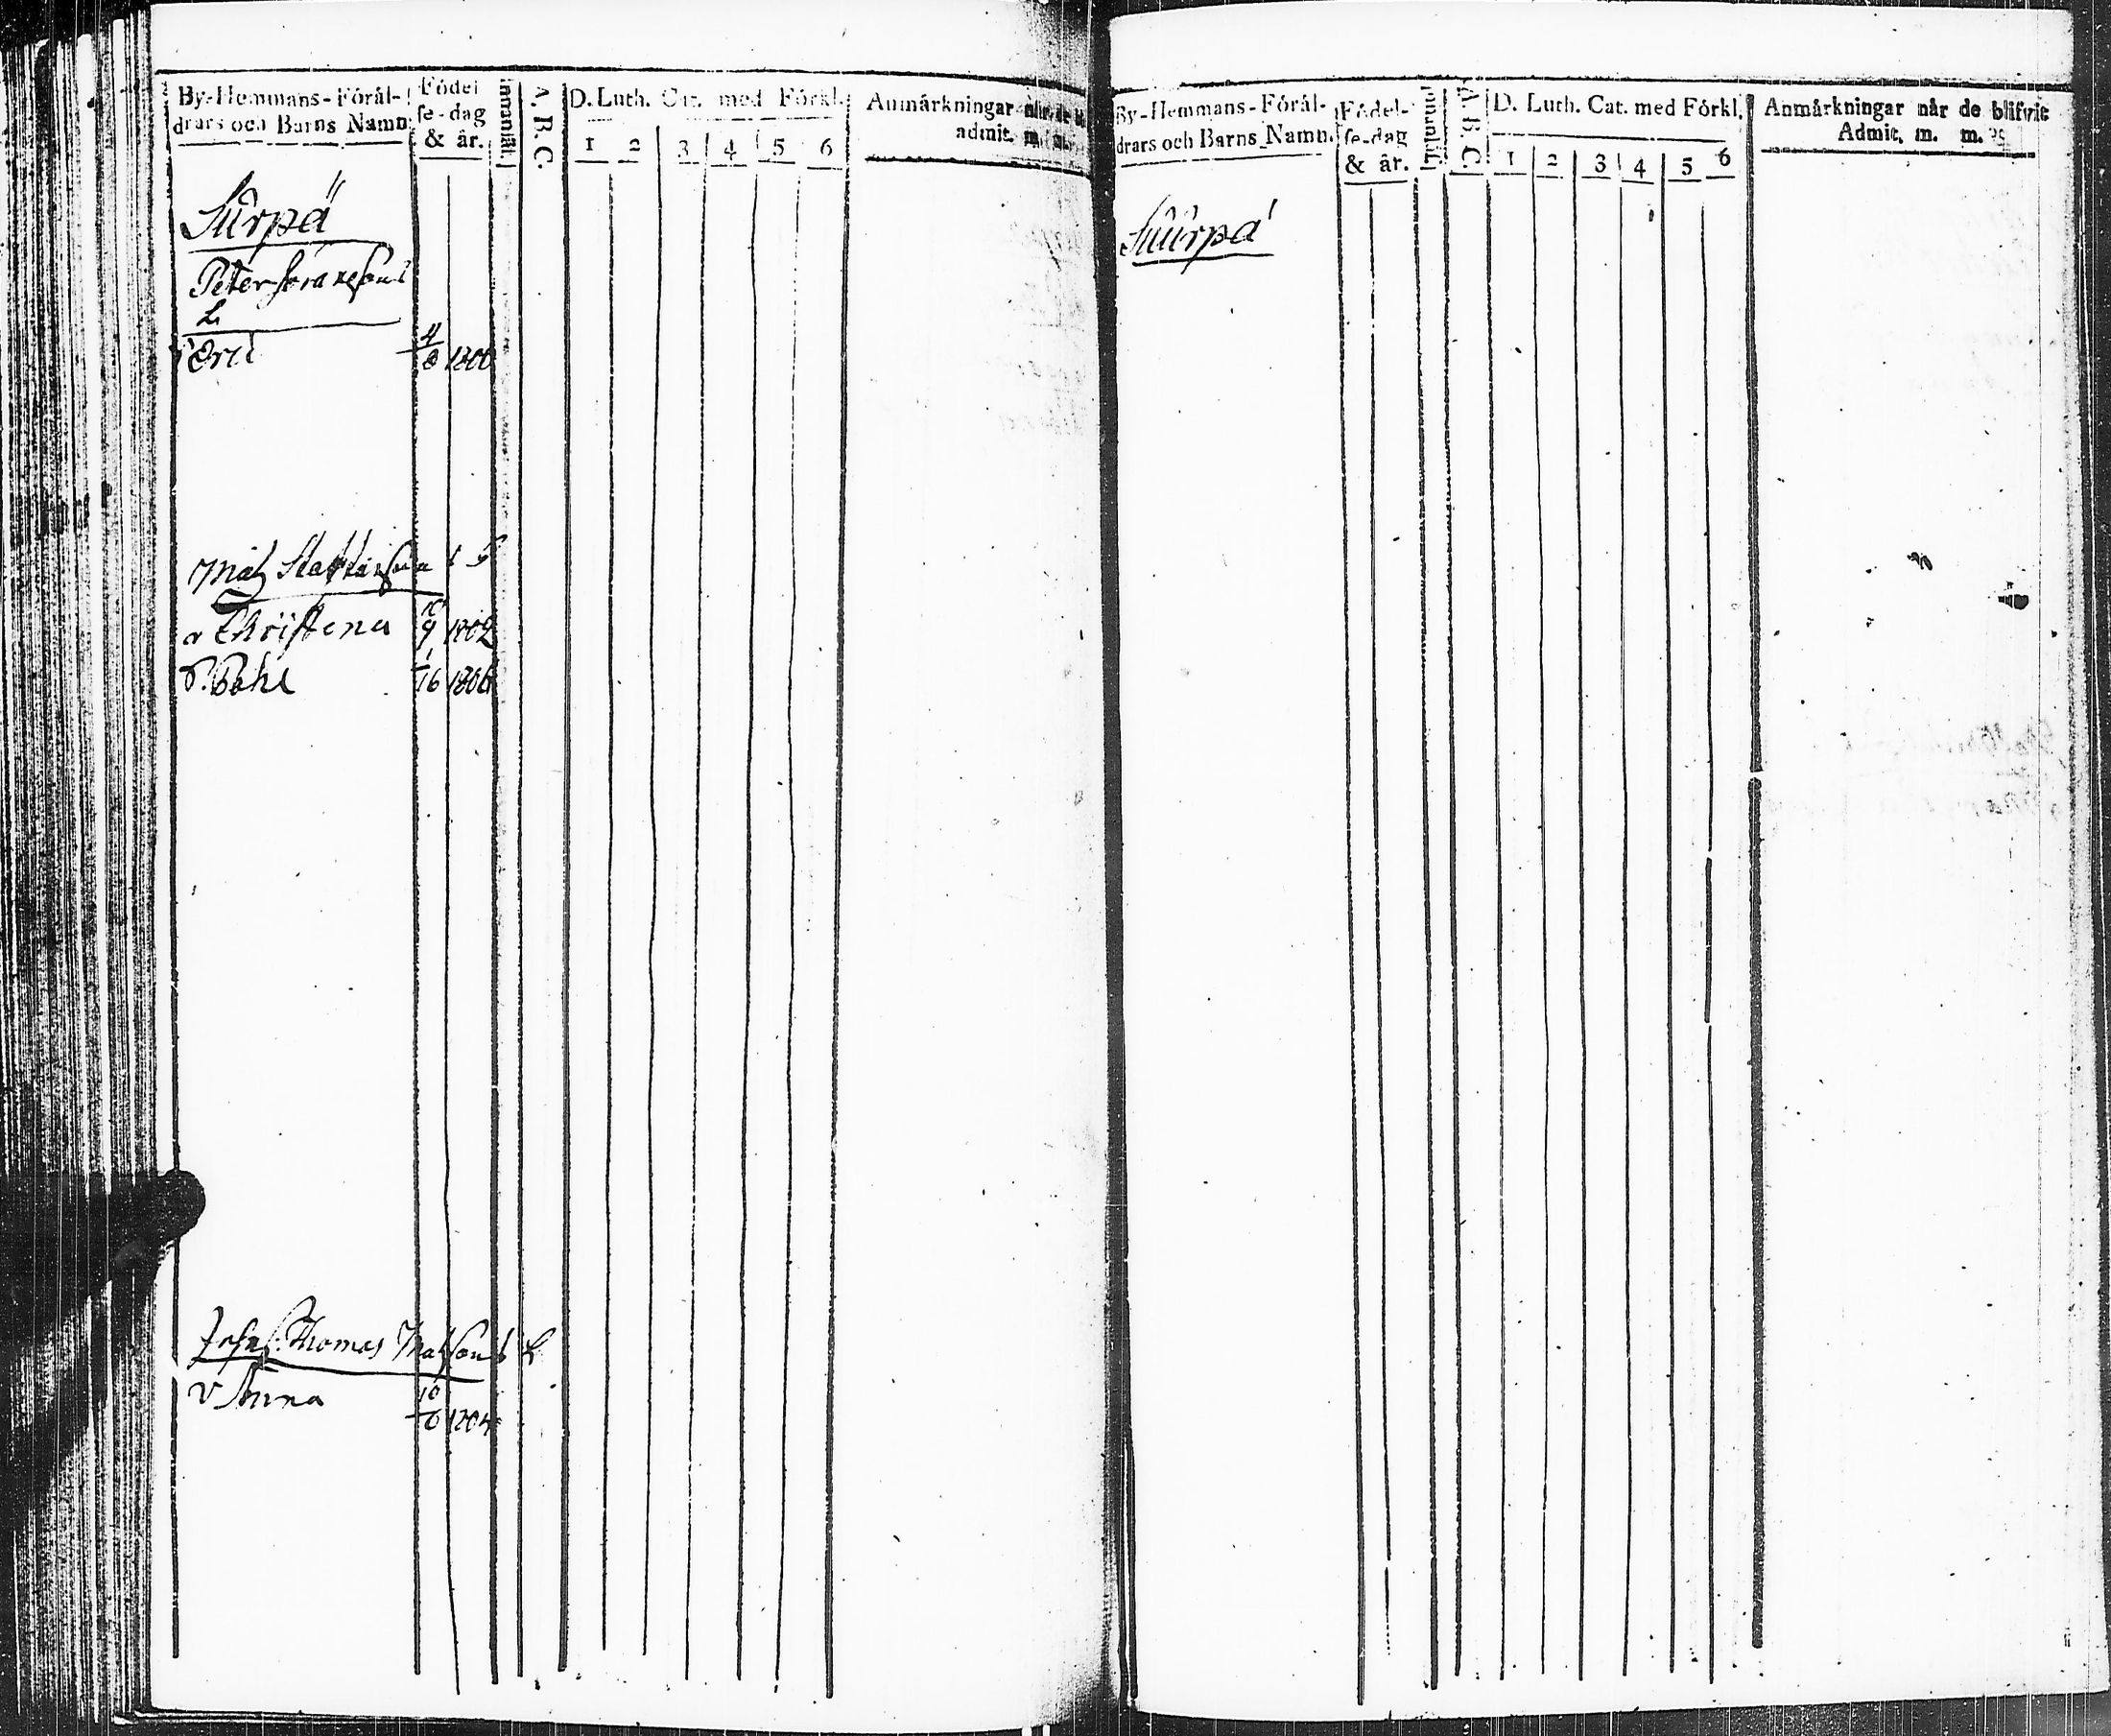 By-Hemmans-Förål-
drars och Barns Namn
Födel
se-dag
& år.
A. B. C.
D. Luth. Cat. med Förkl.
1 2 3 4 5 6
Anmärkningar når de
admit. m. m.
Sürpä
Peter
L
Eric 4/8 1800
Matz
a Christena 10/9 1802
1/16 1806
Thomas Matsons L
v Anna 10/6 1804
By-Hemmans-Förål-
drars och Barns Namn.
Födel-
se-dag
& år.
A. B. C.
D. Luth. Cat. med Förkl.
1 2 3 4 5 6
Anmärkningar når de blifvit
Admit. m. m.
Suurpä